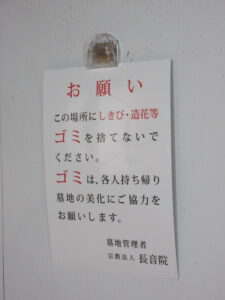 お願い
この場所にしきび・造花等
ゴミを捨てないで
ください。
ゴミは、各人持ち帰り
墓地の美化にご協力を
お願いします。
墓地管理者
宗教法人 長音院